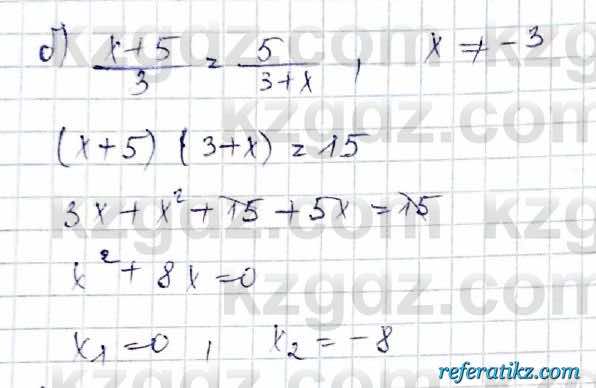 б) (x+5)/3 = 5/(3+x) , x ≠ -3
(x+5) (3+x) = 15
3x + x² + 15 + 5x = 15
x² + 8x = 0
x₁ = 0 , x₂ = -8
kzgdz.com
referatikz.com